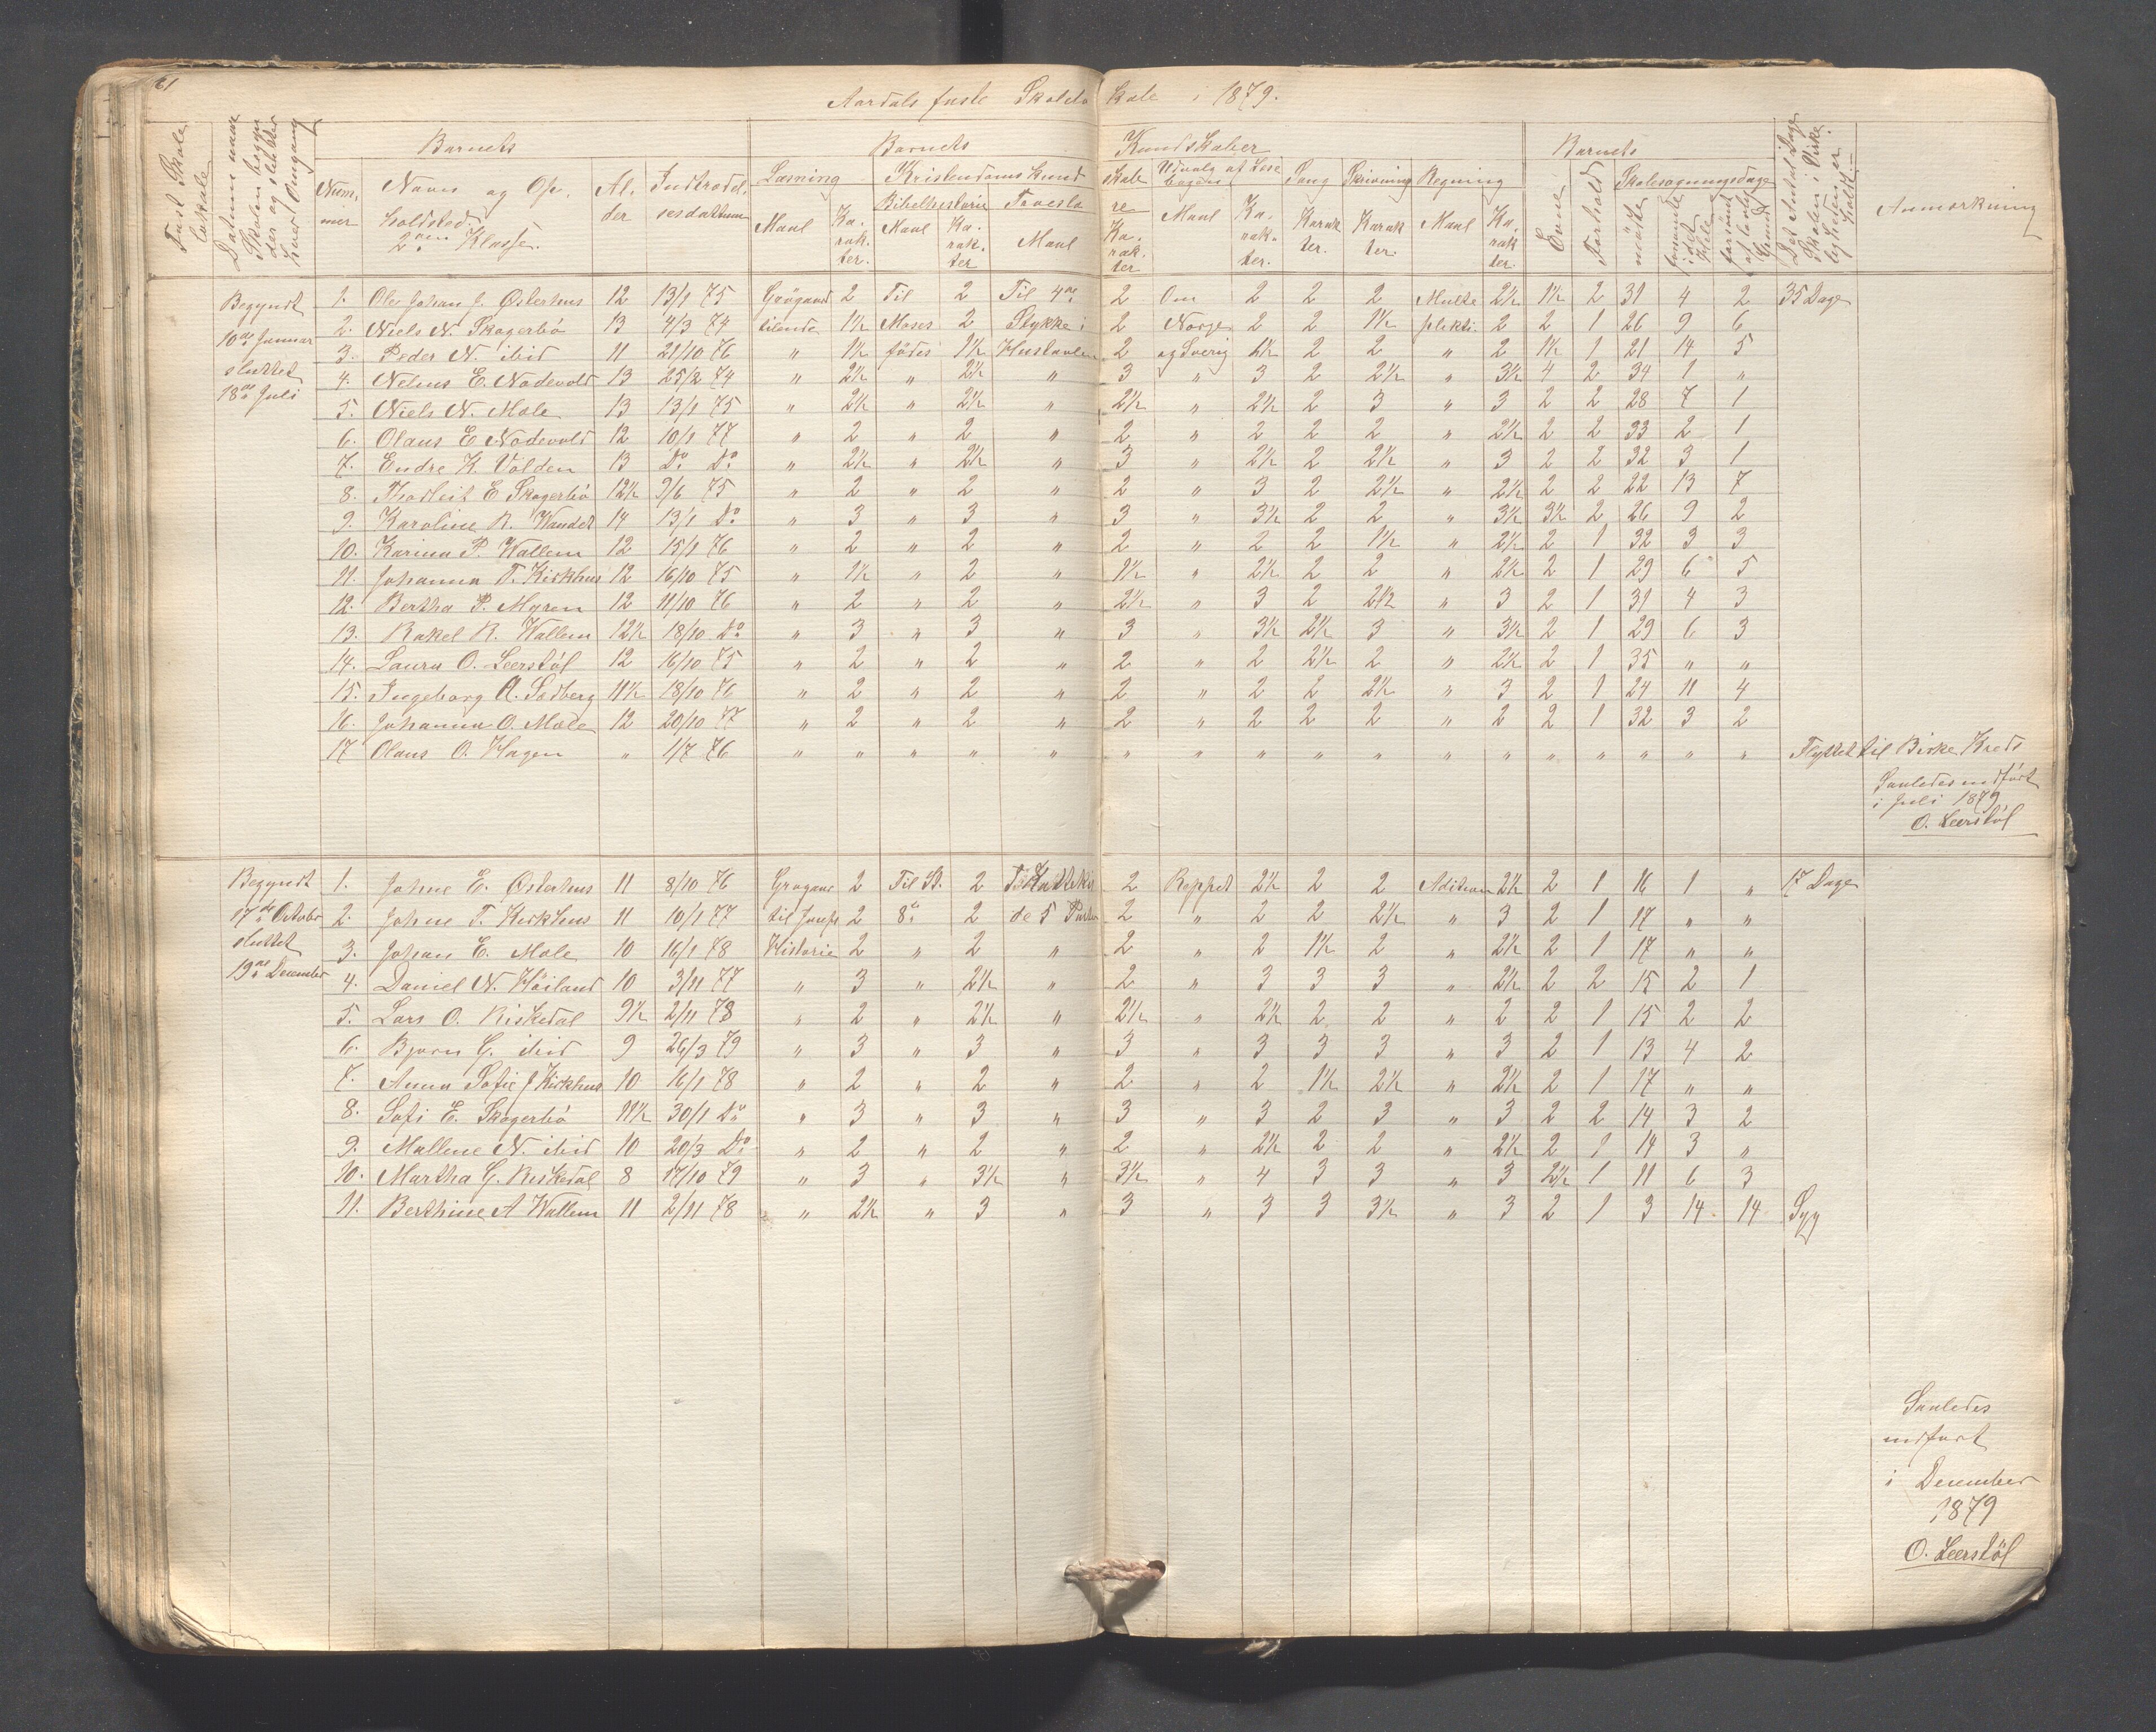 61
Aardals faste Skolelokale i 1879.
Fast Skolelokale
Datum naar Skolen begynder og slutter hver Omgang
Barnets
Barnets
Kundskaber
Barnets
Nummer
Navn og Opholdsted. 2den Klasse.
Alder
Indtrædelsesdatum
Læsning
Kristendoms Kundskab
Udvalg af Læsebogen
Sang
Skrivning
Regning
Evne
Forhold
Skolesøgningsdage
Det Antal Dage Skolen i Virkeligheden er holdt
Anmærkning
Bibelhistorie
Troeslære
mødte
forsømte i det Hele
forsømt af lovlig Grund
Maal
Karakter.
Maal
Karakter
Maal
Karakter
Maal
Karakter.
Karakter.
Karakter.
Maal
Karakter.
Begyndt
10de Januar
sluttet
18de Juli
1. Ole Johan J. Østerhus 12 13/1 75 Grøgaard 2 Til 2 Til 4de 2 Om 2 2 2 Multi 2½ 1½ 2 31 4 2 35 Dage
2. Niels N. Skogerbö 13 4/3 74 tilende 1½ Moses 2 Stykke i 2 Norge 2 2 1½ plekti. 2 2 1 26 9 6
3. Peder N. ibid 11 21/10 76 " 1½ födes 1½ Hustavlen 2 og Sverig 1½ 2 2 " 2 1½ 1 21 14 5
4. Nelius E. Nodevold 13 25/2 74 " 2½ " 2½ " 3 " 3 2 2½ " 3½ 4 2 34 1 "
5. Niels N. Mæle 13 13/1 75 " 2½ " 2½ " 2½ " 2½ 2 3 " 3 2 2 28 7 1
6. Olaus E Nodevold 12 10/1 77 " 2 " 2 " 2 " 2 2 2 " 2½ 2 2 33 2 1
7. Endre K. Volden 13 Do Do " 2½ " 2½ " 3 " 2½ 2 2½ " 3 2 2 32 3 1
8. Thodleit E Skogerbö 12½ 9/6 75 " 2 " 2 " 2 " 3 2 2½ " 2½ 2 2 22 13 7
9. Karoline R. Wandet 14 13/1 Do " 3 " 3 " 3 " 3½ 2 2 " 3½ 3½ 2 26 9 2
10. Karina P. Wallem 12 15/1 76 " 2 " 2 " 2 " 2 2 1½ " 2½ 2 1 32 3 3
11. Johanna T. Kirkhus 12 16/10 75 " 1½ " 2 " 1½ " 2½ 2 2 " 2½ 2 1 29 6 5
12. Bertha P. Myren 12 11/10 76 " 2 " 2 " 2½ " 3 2 2½ " 3 2 1 31 4 3
13. Rakel R. Wallem 12½ 18/10 Do " 3 " 3 " 3 " 3½ 2½ 3 " 3½ 2 1 29 6 3
14. Laura O. Leerstöl 12 16/10 75 " 2 " 2 " 2 " 2 2½ 2 " 2½ 2 1 35 " "
15. Ingeborg A. Sedberg 11½ 18/10 76 " 2 " 2 " 2 " 2 2 2½ " 3 2 1 24 11 4
16. Johanna O. Mæle 12 20/10 77 " 2 " 2 " 2 " 2 2 2 " 2 2 1 32 3 2
17 Olaus O. Hagen " 1/7 76 " " " " " " " " " " " " " " " " " Flyttet til Birke Kreds
Saaledes udfört
i Juli 1879
O. Leerstöl
Begyndt
17de Octobr
sluttet
19de December
1. Johne E. Østerhus 11 8/10 76 Grøgaard 2 Til St. 2 2 Reppet 2½ 2 2 Adition 2½ 2 1 16 1 " 17 Dage
2. Johne T. Kirkhus 11 10/1 77 til Josefs 2 8de 2 de 5 Parter 2 " 2 2 2½ " 3 2 1 17 " "
3. Johan E. Mæle 10 16/1 78 Historie 2 " 2 " 2 " 2 1½ 2 " 2½ 2 1 17 " "
4. Daniel N. Höiland 10 3/11 77 " 3 " 2½ " 2 " 3 3 3 " 2½ 2 2 15 2 1
5. Lars O. Riskedal 9½ 2/11 78 " 2 " 2½ " 2½ " 2½ 2 2 " 2 2 1 15 2 2
6. Bjørn G. ibid 9 26/3 79 " 3 " 3 " 3 " 3 3 3 " 3 2 1 13 4 2
7. Anna Sofie J Kirkhus 10 16/1 78 " 2 " 2 " 2 " 2 1½ 2½ " 2½ 2 1 17 " "
8. Sofi E. Skogerbö 11½ 30/1 Do " 3 " 3 " 3 " 3 2 3 " 3 2 2 14 3 2
9. Mallene N. ibid 10 20/3 Do " 2 " 2 " 2 " 2½ 2 2 " 2½ 2 1 14 3 "
10. Martha G. Riskedal 8 17/10 79 " 3 " 3½ " 3½ " 4 3 3 " 3 2½ 1 11 6 3
11. Berthine A Wallem 11 2/11 78 " 2½ " 3 " 3 " 3 3 3½ " 3 2 1 3 14 14 Syg
Saaledes
udført
i December
1879
O. Leerstöl